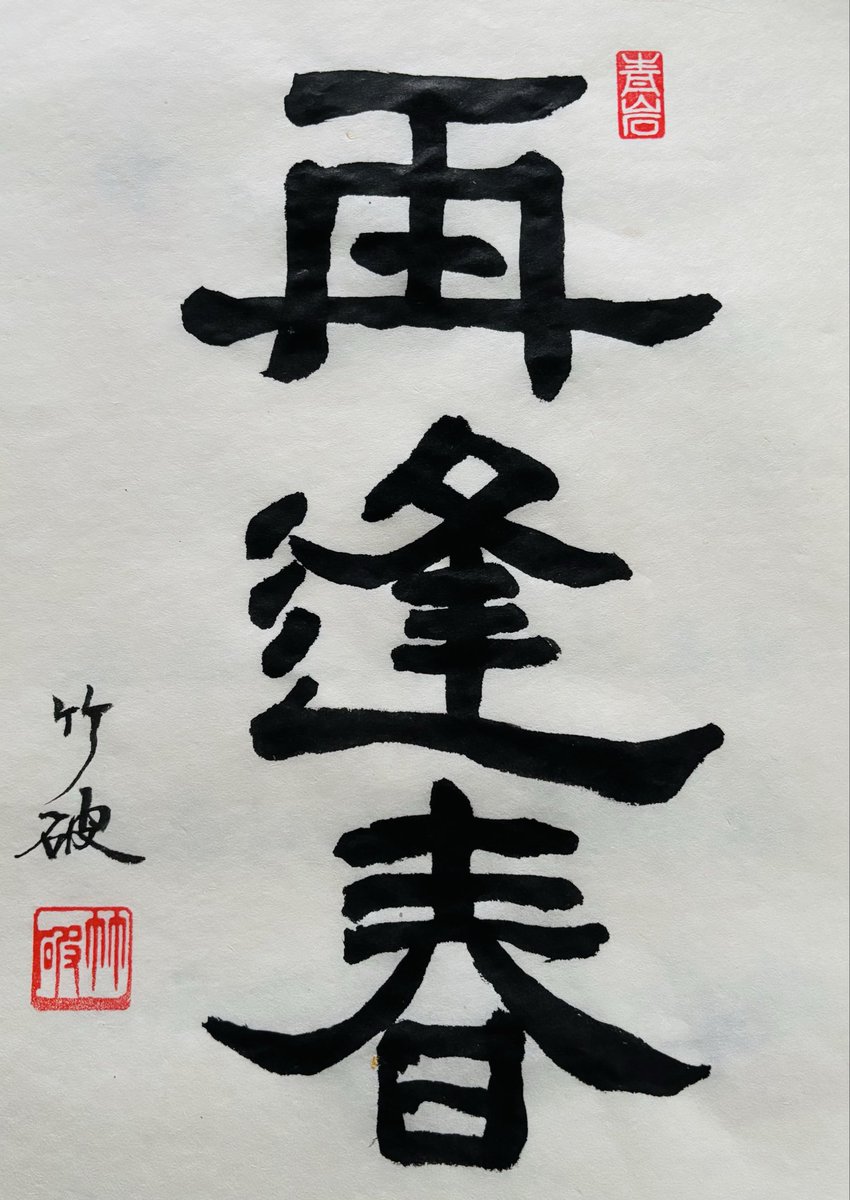 再逢春
竹破
竹破